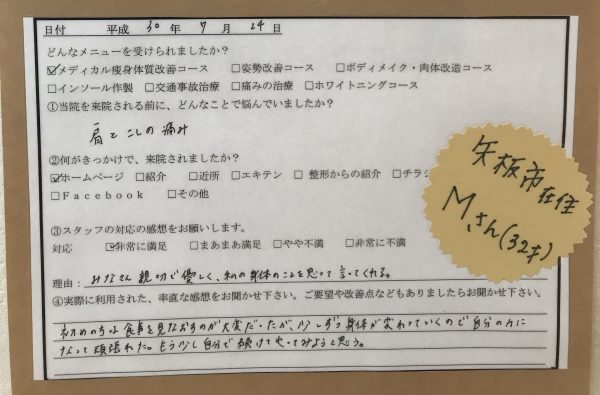 日付 平成 30 年 7 月 24 日
どんなメニューを受けられましたか?
☑メディカル痩身体質改善コース □姿勢改善コース □ボディメイク・肉体改造コース
□インソール作製 □交通事故治療 □痛みの治療 □ホワイトニングコース
①当院を来院される前に、どんなことで悩んでいましたか?
肩とこしの痛み
②何がきっかけで、来院されましたか?
☑ホームページ □紹介 □近所 □エキテン □整形からの紹介 □チラシ
□Facebook □その他
③スタッフの対応の感想をお願いします。
対応 ☑非常に満足 □まあまあ満足 □やや不満 □非常に不満
理由: みなさん親切で優しく、私の身体のことを思って言ってくれる。
④実際に利用された、率直な感想をお聞かせ下さい。ご要望や改善点などもありましたらお聞かせ下さい。
初めのうちは食事を見なおすのが大変だったが、少しずつ身体が変わっていくので自分の力に
なって頑張れた。もう少し自分で続けてやってみようと思う。
矢板市在住
Mさん(32才)